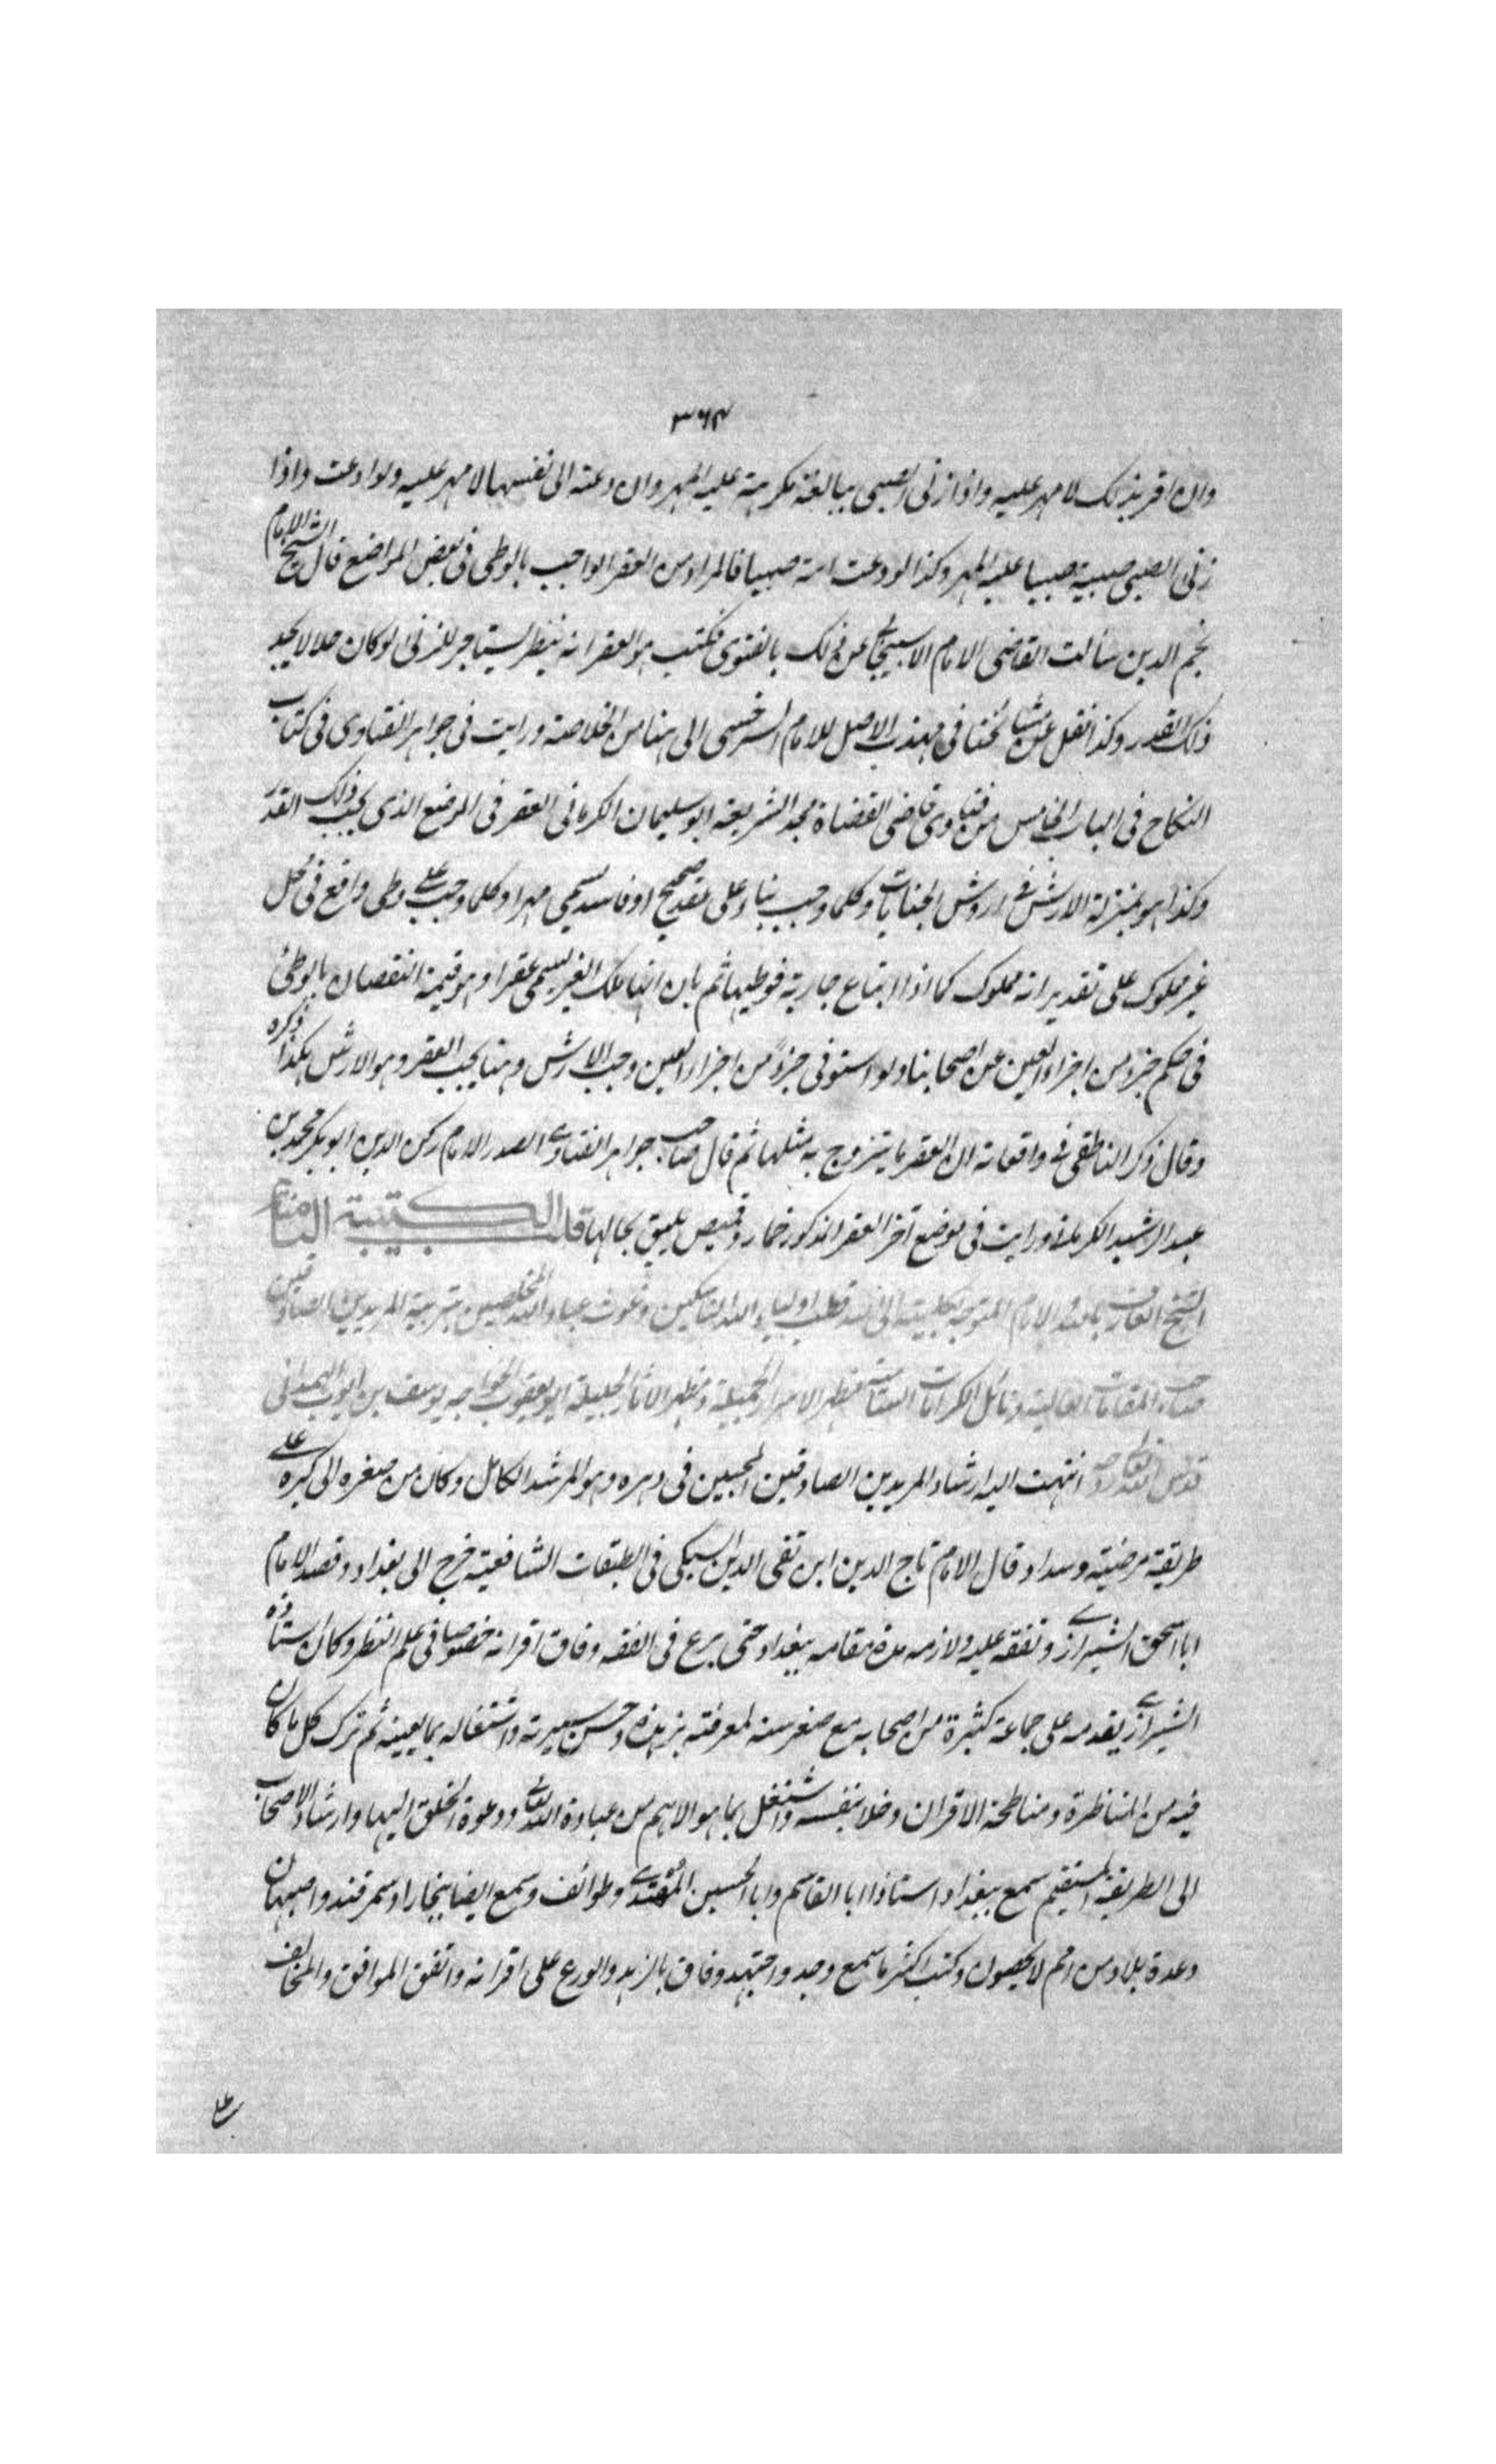 ٣٦٤
وان اقر بذلك لا مهر عليه واذا زنى الصبى ببالغة مكرهة عليه المهر وان دعته الى نفسها لا مهر عليه ولو ادعت واذا
زنى الصبى صبية صبيا عليه المهر وكذا لو دعت امة صبيا فالمراد من العقر الواجب بالوطى فى بعض المواضع قال الشيخ الامام
نجم الدين سألت القاضى الامام الاسبيجابى عن ذلك بالفتوى فكتب هو العقر انه ينظر يستاجر للزنى لو كان حلالا يجب
ذلك القدر وكذا نقل عن مشائخنا فى مهذب الاصل للامام السرخسى الى هنا من الخلاصة ورايت فى جواهر الفتاوى فى كتاب
النكاح فى الباب الخامس من فتاوى قاضى القضاة مجد الشريعة ابو سليمان الكرمانى العقر فى الموضع الذى يجب ذلك القدر
وكذا هو بمنزلة الارش فى اروش الجنايات وكلما وجب بناء على عقد صحيح او فاسد يسمى مهرا وكلما وجب على وطى واقع فى محل
غير مملوك على تقدير انه مملوك كما اذا ابتاع جارية فوطيها ثم بان انها ملك الغير يسمى عقرا وهو قيمة النقصان بالوطئ
فى حكم جزء من اجزاء العين عن اصحابنا ولو استوفى جزءً من اجزاء العين وجب الارش وهنا يجب العقر وهو الارش هكذا ذكره
وقال ذكر الناطقى فى واقعاته ان العقر ما يتزوج به مثلها ثم قال صاحب جواهر الفتاوى الصدر الامام ركن الدين ابو بكر محمد بن
عبد الرشيد الكرمانى ورايت فى موضع آخر العقر المذكور خمار وقميص يليق بحالها قلب الكتيبة الثامنة
الشيخ العارف بالله والامام المتوجه بكليته الى الله قطب اولياء الله الناسكين وغوث عباد الله المخلصين بتربية المريدين الصادقين
صاحب المقامات العالية ونائل الكرامات السامية مظهر الاسرار الجميلة ومظهر الاثار الجليلة ابو يعقوب الخواجه يوسف بن ايوب الهمدانى
قدس الله تعالى روحه انتهت اليه ارشاد المريدين الصادقين المحبين فى دهره وهو المرشد الكامل وكان من صغره الى كبره على
طريقة مرضية وسداد قال الامام تاج الدين ابن تقى الدين السبكى فى الطبقات الشافعية خرج الى بغداد وقصد الامام
ابا اسحق الشيرازى وتفقه عليه ولازمه مدة مقامه ببغداد حتى برع فى الفقه وفاق اقرانه خصوصا فى علم النظر وكان استاذه
الشيرازى يقدمه على جماعة كثيرة من اصحابه مع صغر سنه لمعرفته بزهده وحسن سيرته واشتغاله بما يعينه ثم ترك كل ما كان
فيه من المناظرة ومناطحة الاقران وخلا بنفسه واشتغل بما هو الاهم من عبادة الله تعالى ودعوة الخلق اليها وارشاد الاصحاب
الى الطريقة المستقيم سمع ببغداد استاذا ابا القاسم وابا الحسين المهتدى وطوائف وسمع ايضا ببخارا وسمرقند واصبهان
وعدة بلاد من امم لا يحصون وكتب اكثر ما سمع وجد واجتهد وفاق بالزهد والورع على اقرانه واتفق الموافق والمخالف